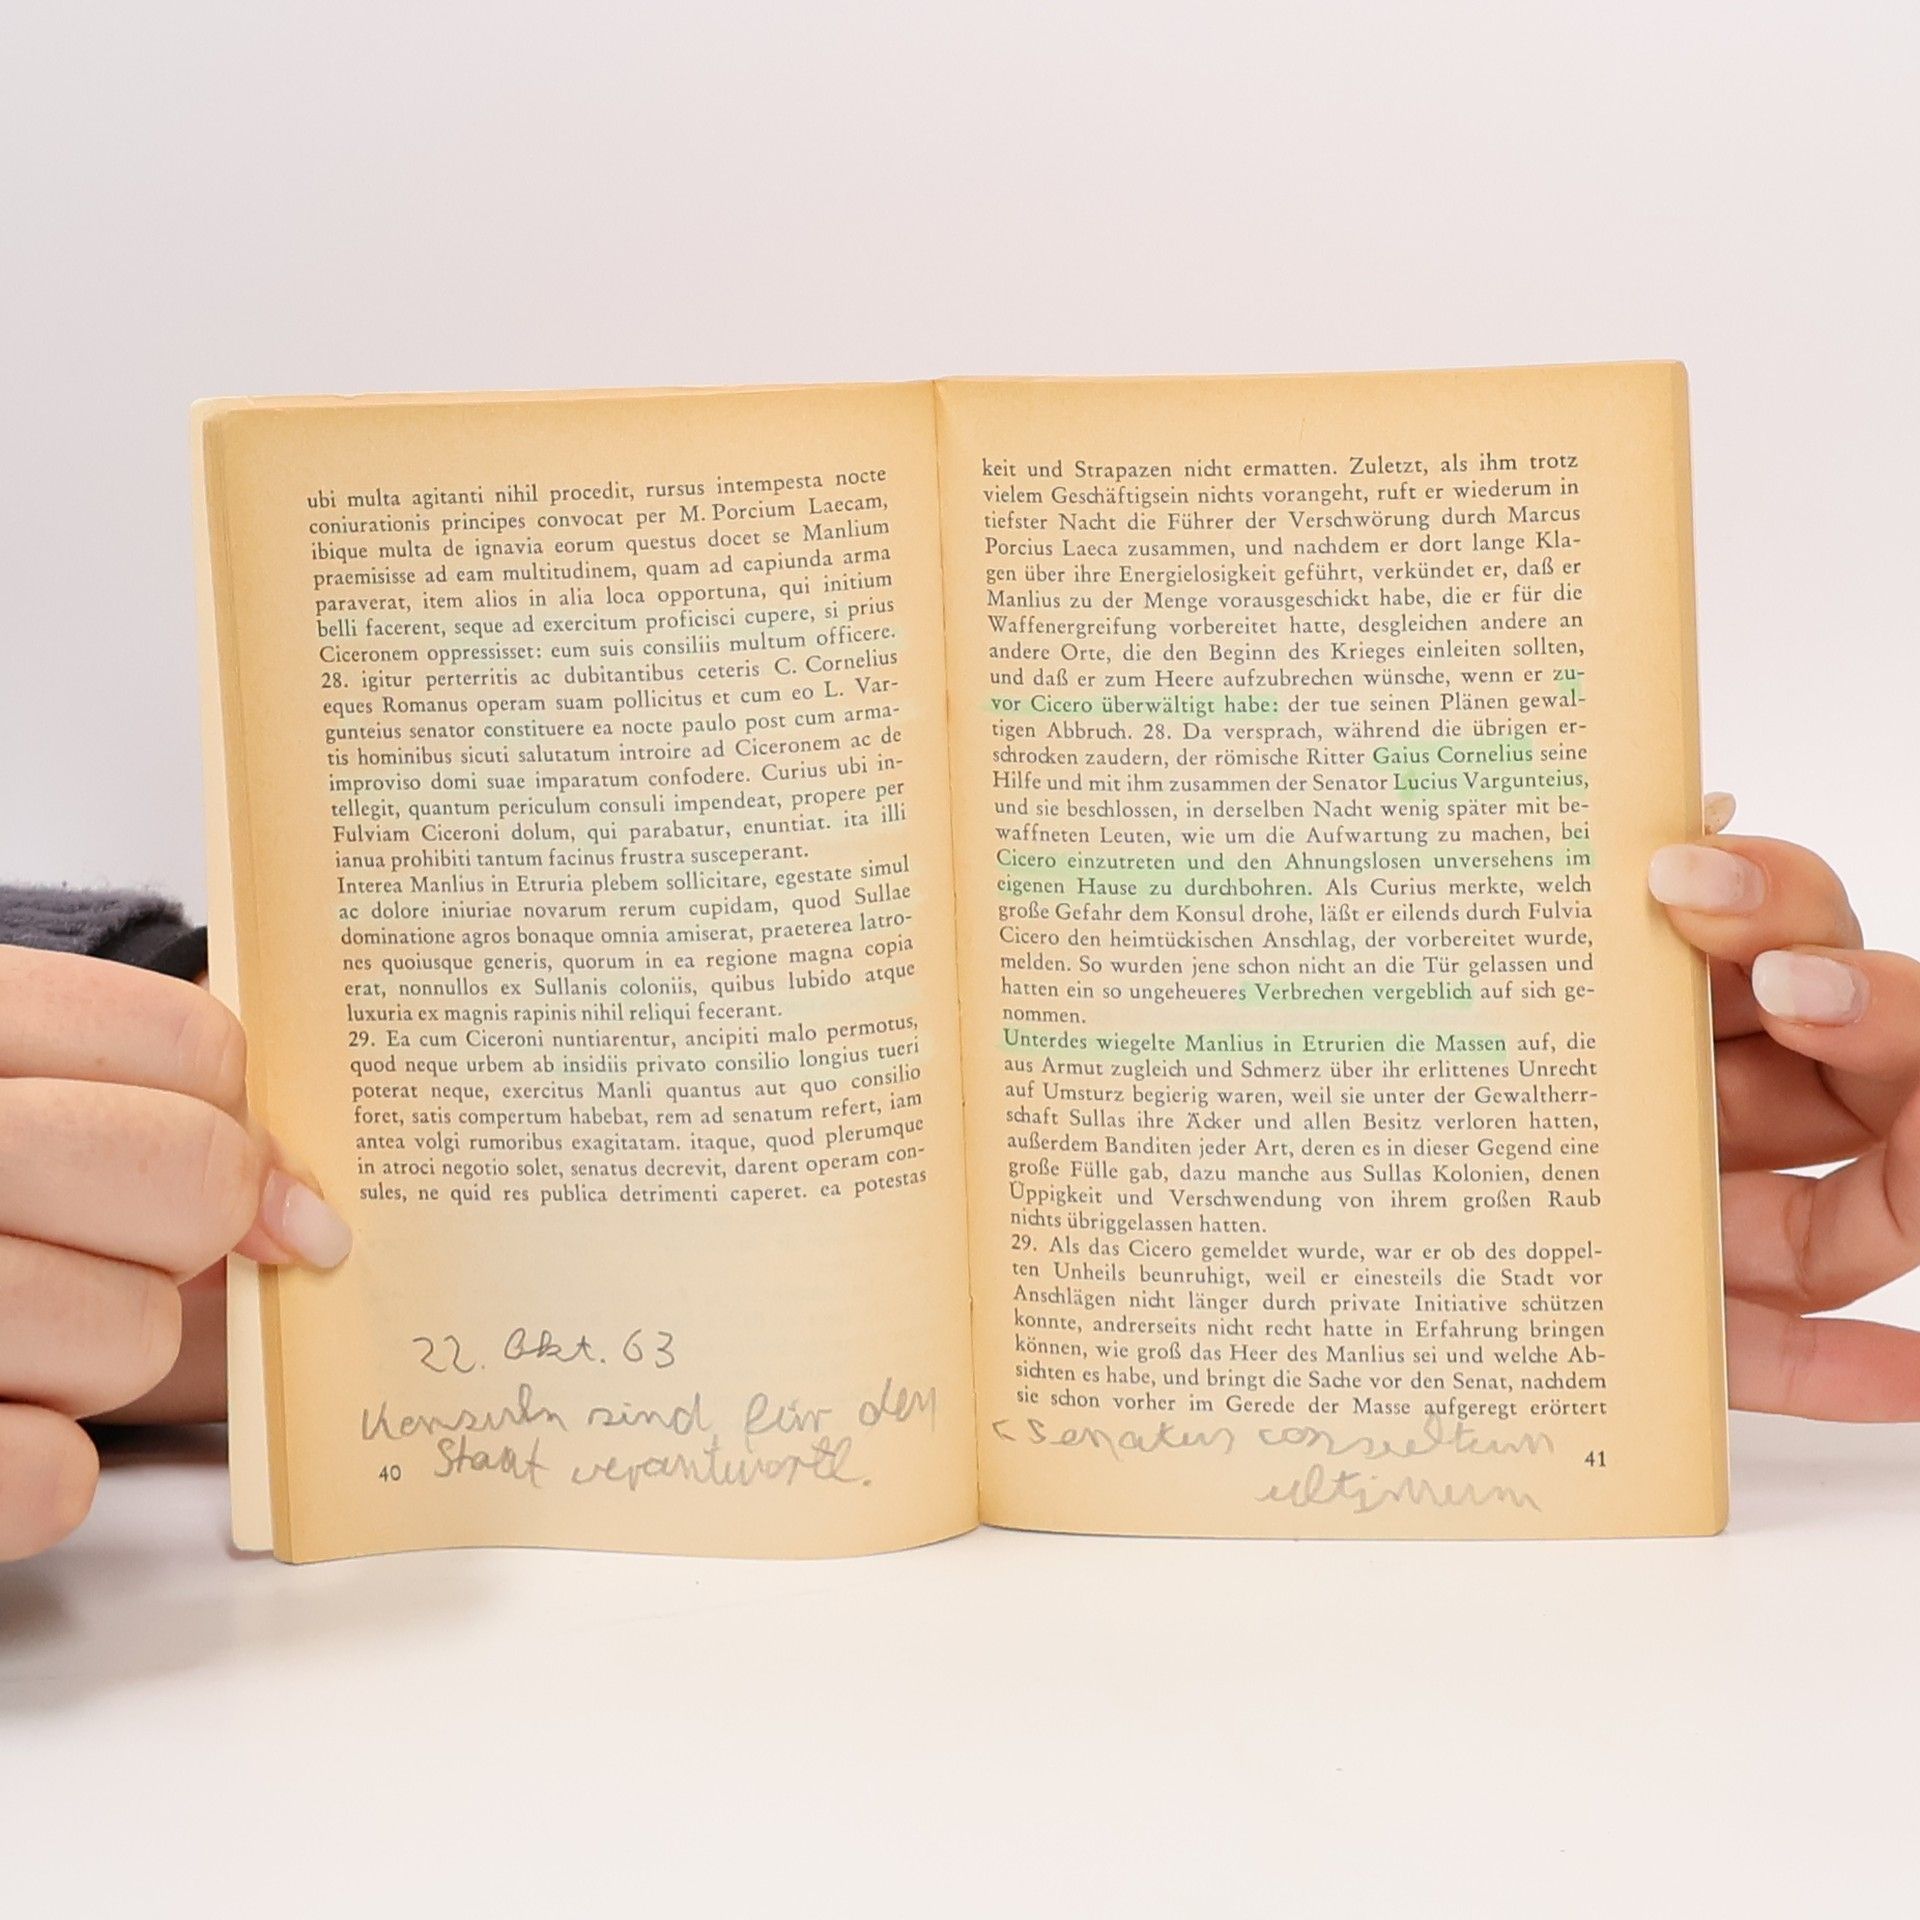 ubi multa agitanti nihil procedit, rursus intempesta nocte
coniurationis principes convocat per M. Porcium Laecam,
ibique multa de ignavia eorum questus docet se Manlium
praemisisse ad eam multitudinem, quam ad capiunda arma
paraverat, item alios in alia loca opportuna, qui initium
belli facerent, seque ad exercitum proficisci cupere, si prius
Ciceronem oppressisset: eum suis consiliis multum officere.
28. igitur perterritis ac dubitantibus ceteris C. Cornelius
eques Romanus operam suam pollicitus et cum eo L. Var-
gunteius senator constituere ea nocte paulo post cum arma-
tis hominibus sicuti salutatum introire ad Ciceronem ac de
improviso domi suae imparatum confodere. Curius ubi in-
tellegit, quantum periculum consuli impendeat, propere per
Fulviam Ciceroni dolum, qui parabatur, enuntiat. ita illi
ianua prohibiti tantum facinus frustra susceperant.
Interea Manlius in Etruria plebem sollicitare, egestate simul
ac dolore iniuriae novarum rerum cupidam, quod Sullae
dominatione agros bonaque omnia amiserat, praeterea latro-
nes quoiusque generis, quorum in ea regione magna copia
erat, nonnullos ex Sullanis coloniis, quibus lubido atque
luxuria ex magnis rapinis nihil reliqui fecerant.
29. Ea cum Ciceroni nuntiarentur, ancipiti malo permotus,
quod neque urbem ab insidiis privato consilio longius tueri
poterat neque, exercitus Manli quantus aut quo consilio
foret, satis compertum habebat, rem ad senatum refert, iam
antea volgi rumoribus exagitatam. itaque, quod plerumque
in atroci negotio solet, senatus decrevit, darent operam con-
sules, ne quid res publica detrimenti caperet. ea potestas
22. Okt. 63
Konsuln sind für den
Staat verantwortl.
40
keit und Strapazen nicht ermatten. Zuletzt, als ihm trotz
vielem Geschäftigsein nichts vorangeht, ruft er wiederum in
tiefster Nacht die Führer der Verschwörung durch Marcus
Porcius Laeca zusammen, und nachdem er dort lange Kla-
gen über ihre Energielosigkeit geführt, verkündet er, daß er
Manlius zu der Menge vorausgeschickt habe, die er für die
Waffenergreifung vorbereitet hatte, desgleichen andere an
andere Orte, die den Beginn des Krieges einleiten sollten,
und daß er zum Heere aufzubrechen wünsche, wenn er zu-
vor Cicero überwältigt habe: der tue seinen Plänen gewal-
tigen Abbruch. 28. Da versprach, während die übrigen er-
schrocken zaudern, der römische Ritter Gaius Cornelius seine
Hilfe und mit ihm zusammen der Senator Lucius Vargunteius,
und sie beschlossen, in derselben Nacht wenig später mit be-
waffneten Leuten, wie um die Aufwartung zu machen, bei
Cicero einzutreten und den Ahnungslosen unversehens im
eigenen Hause zu durchbohren. Als Curius merkte, welch
große Gefahr dem Konsul drohe, läßt er eilends durch Fulvia
Cicero den heimtückischen Anschlag, der vorbereitet wurde,
melden. So wurden jene schon nicht an die Tür gelassen und
hatten ein so ungeheueres Verbrechen vergeblich auf sich ge-
nommen.
Unterdes wiegelte Manlius in Etrurien die Massen auf, die
aus Armut zugleich und Schmerz über ihr erlittenes Unrecht
auf Umsturz begierig waren, weil sie unter der Gewaltherr-
schaft Sullas ihre Äcker und allen Besitz verloren hatten,
außerdem Banditen jeder Art, deren es in dieser Gegend eine
große Fülle gab, dazu manche aus Sullas Kolonien, denen
Üppigkeit und Verschwendung von ihrem großen Raub
nichts übriggelassen hatten.
29. Als das Cicero gemeldet wurde, war er ob des doppel-
ten Unheils beunruhigt, weil er einesteils die Stadt vor
Anschlägen nicht länger durch private Initiative schützen
konnte, andrerseits nicht recht hatte in Erfahrung bringen
können, wie groß das Heer des Manlius sei und welche Ab-
sichten es habe, und bringt die Sache vor den Senat, nachdem
sie schon vorher im Gerede der Masse aufgeregt erörtert
Senatus consultum
ultimum
41